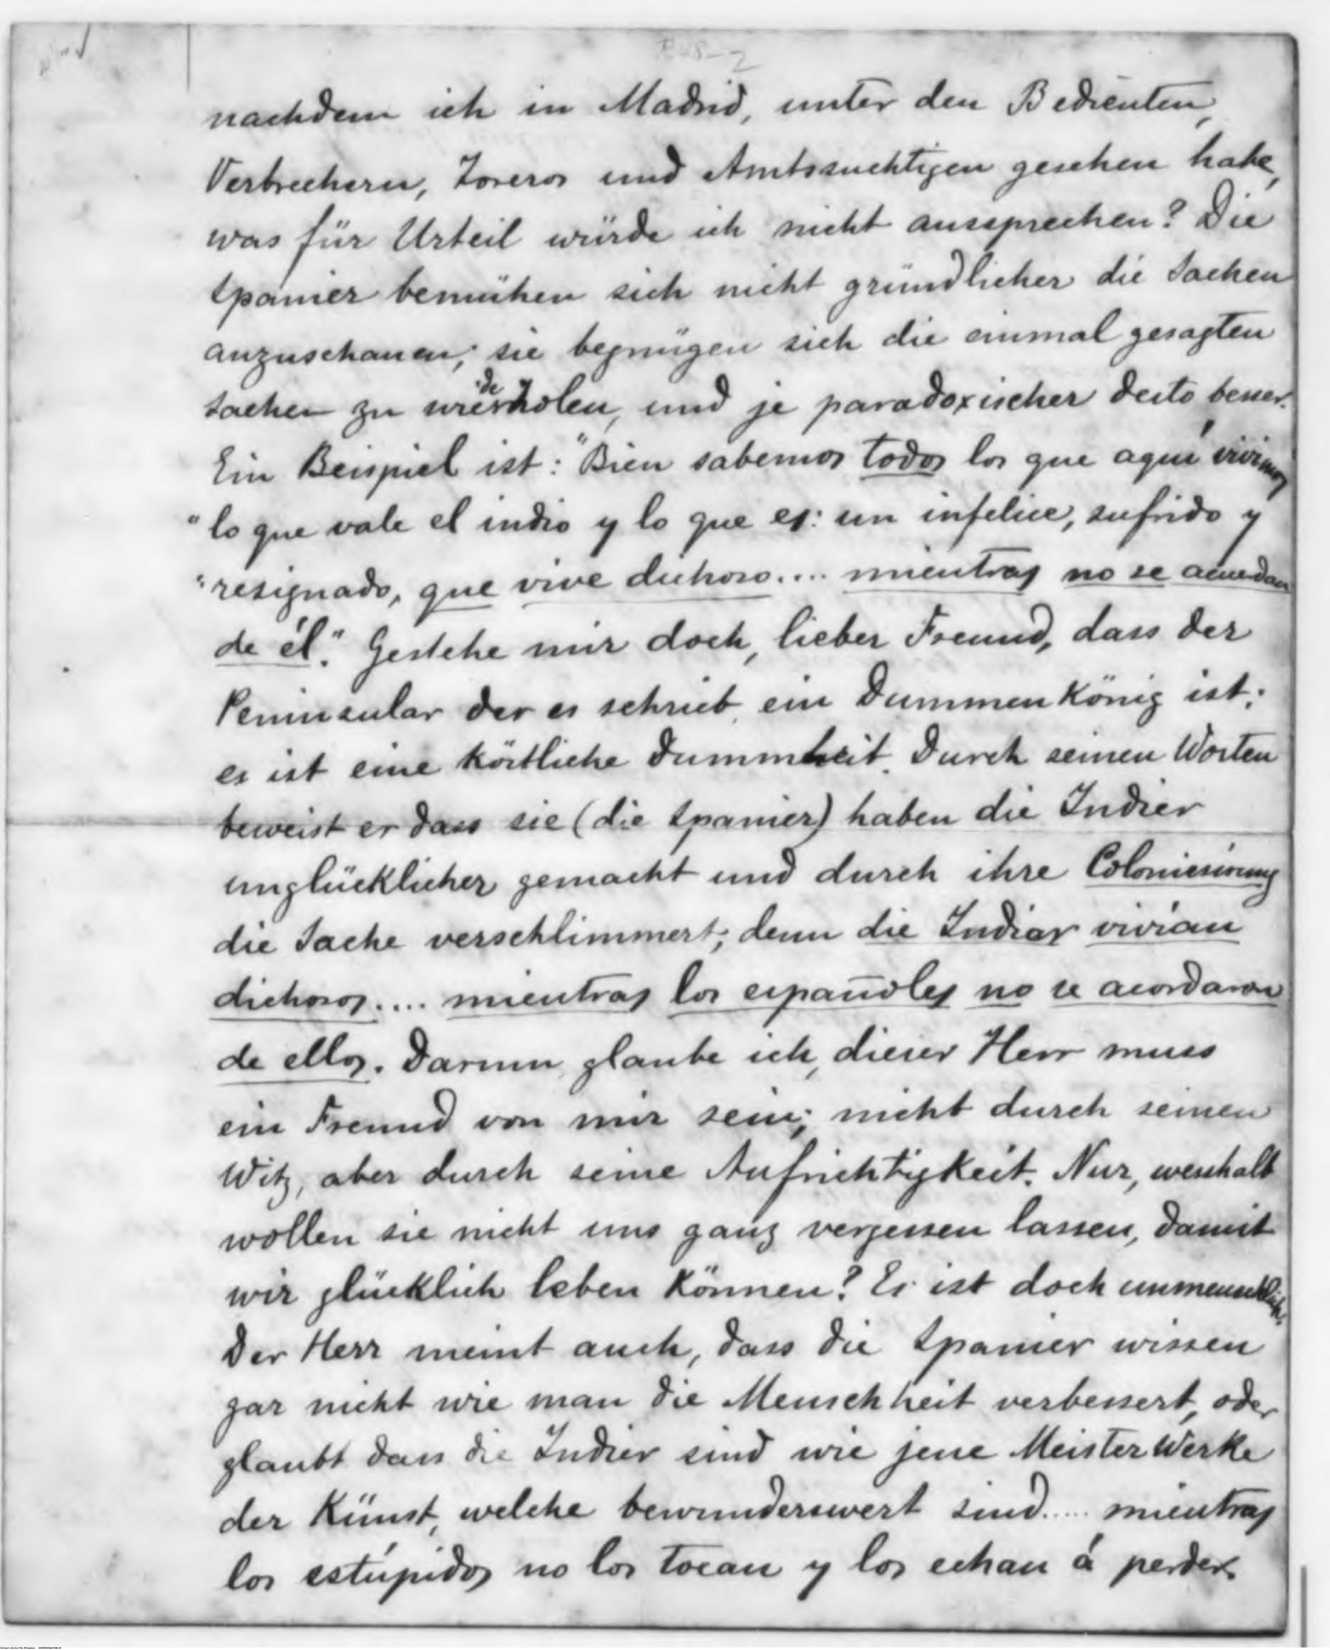 nachdem ich in Madrid, unter den Bedienten,
Verbrechern, Toreros und Amtssuchtigen gesehen habe,
was für Urteil würde ich nicht aussprechen? Die
Spanier bemühen sich nicht gründlicher die Sachen
anzuschauen; sie begnügen sich die einmal gesagten
Sachen zu wiederholen, und je paradoxischer desto besser.
Ein Beispiel ist: "Bien sabemos todos los que aquí vivimos
"lo que vale el indio y lo que es: un infelice, sufrido y
"resignado, que vive dichoso.... mientras no se acuerdan
de él." Gestehe mir doch, lieber Freund, dass der
Peninsular der es schrieb ein Dummenkönig ist;
es ist eine köstliche Dummheit. Durch seinen Worten
beweist er dass sie (die Spanier) haben die Indier
unglücklicher gemacht und durch ihre Coloniesirung
die Sache verschlimmert; denn die Indier vivian
dichosos.... mientras los españoles no se acordaron
de ellos. Darum glaube ich, dieser Herr muss
ein Freund von mir sein; nicht durch seinen
Witz, aber durch seine Aufrichtigkeit. Nur, wesshalb
wollen sie nicht uns ganz vergessen lassen, damit
wir glücklich leben können? Es ist doch unmenschlich.
Der Herr meint auch, dass die Spanier wissen
gar nicht wie man die Menschheit verbessert, oder
glaubt dass die Indier sind wie jene Meister Werke
der Künst, welche bewunderswert sind..... mientras
los estúpidos no los tocan y los echan á perder.